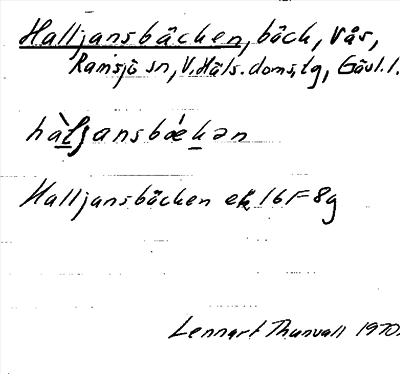 Halljansbäcken, bäck, V år,
Ramsjö sn, V. Häls. doms, tg, Gävl. l.
hàljansbǿkən
Halljansbäcken ek 16 F 8g
Lennart Thunvall 1970.